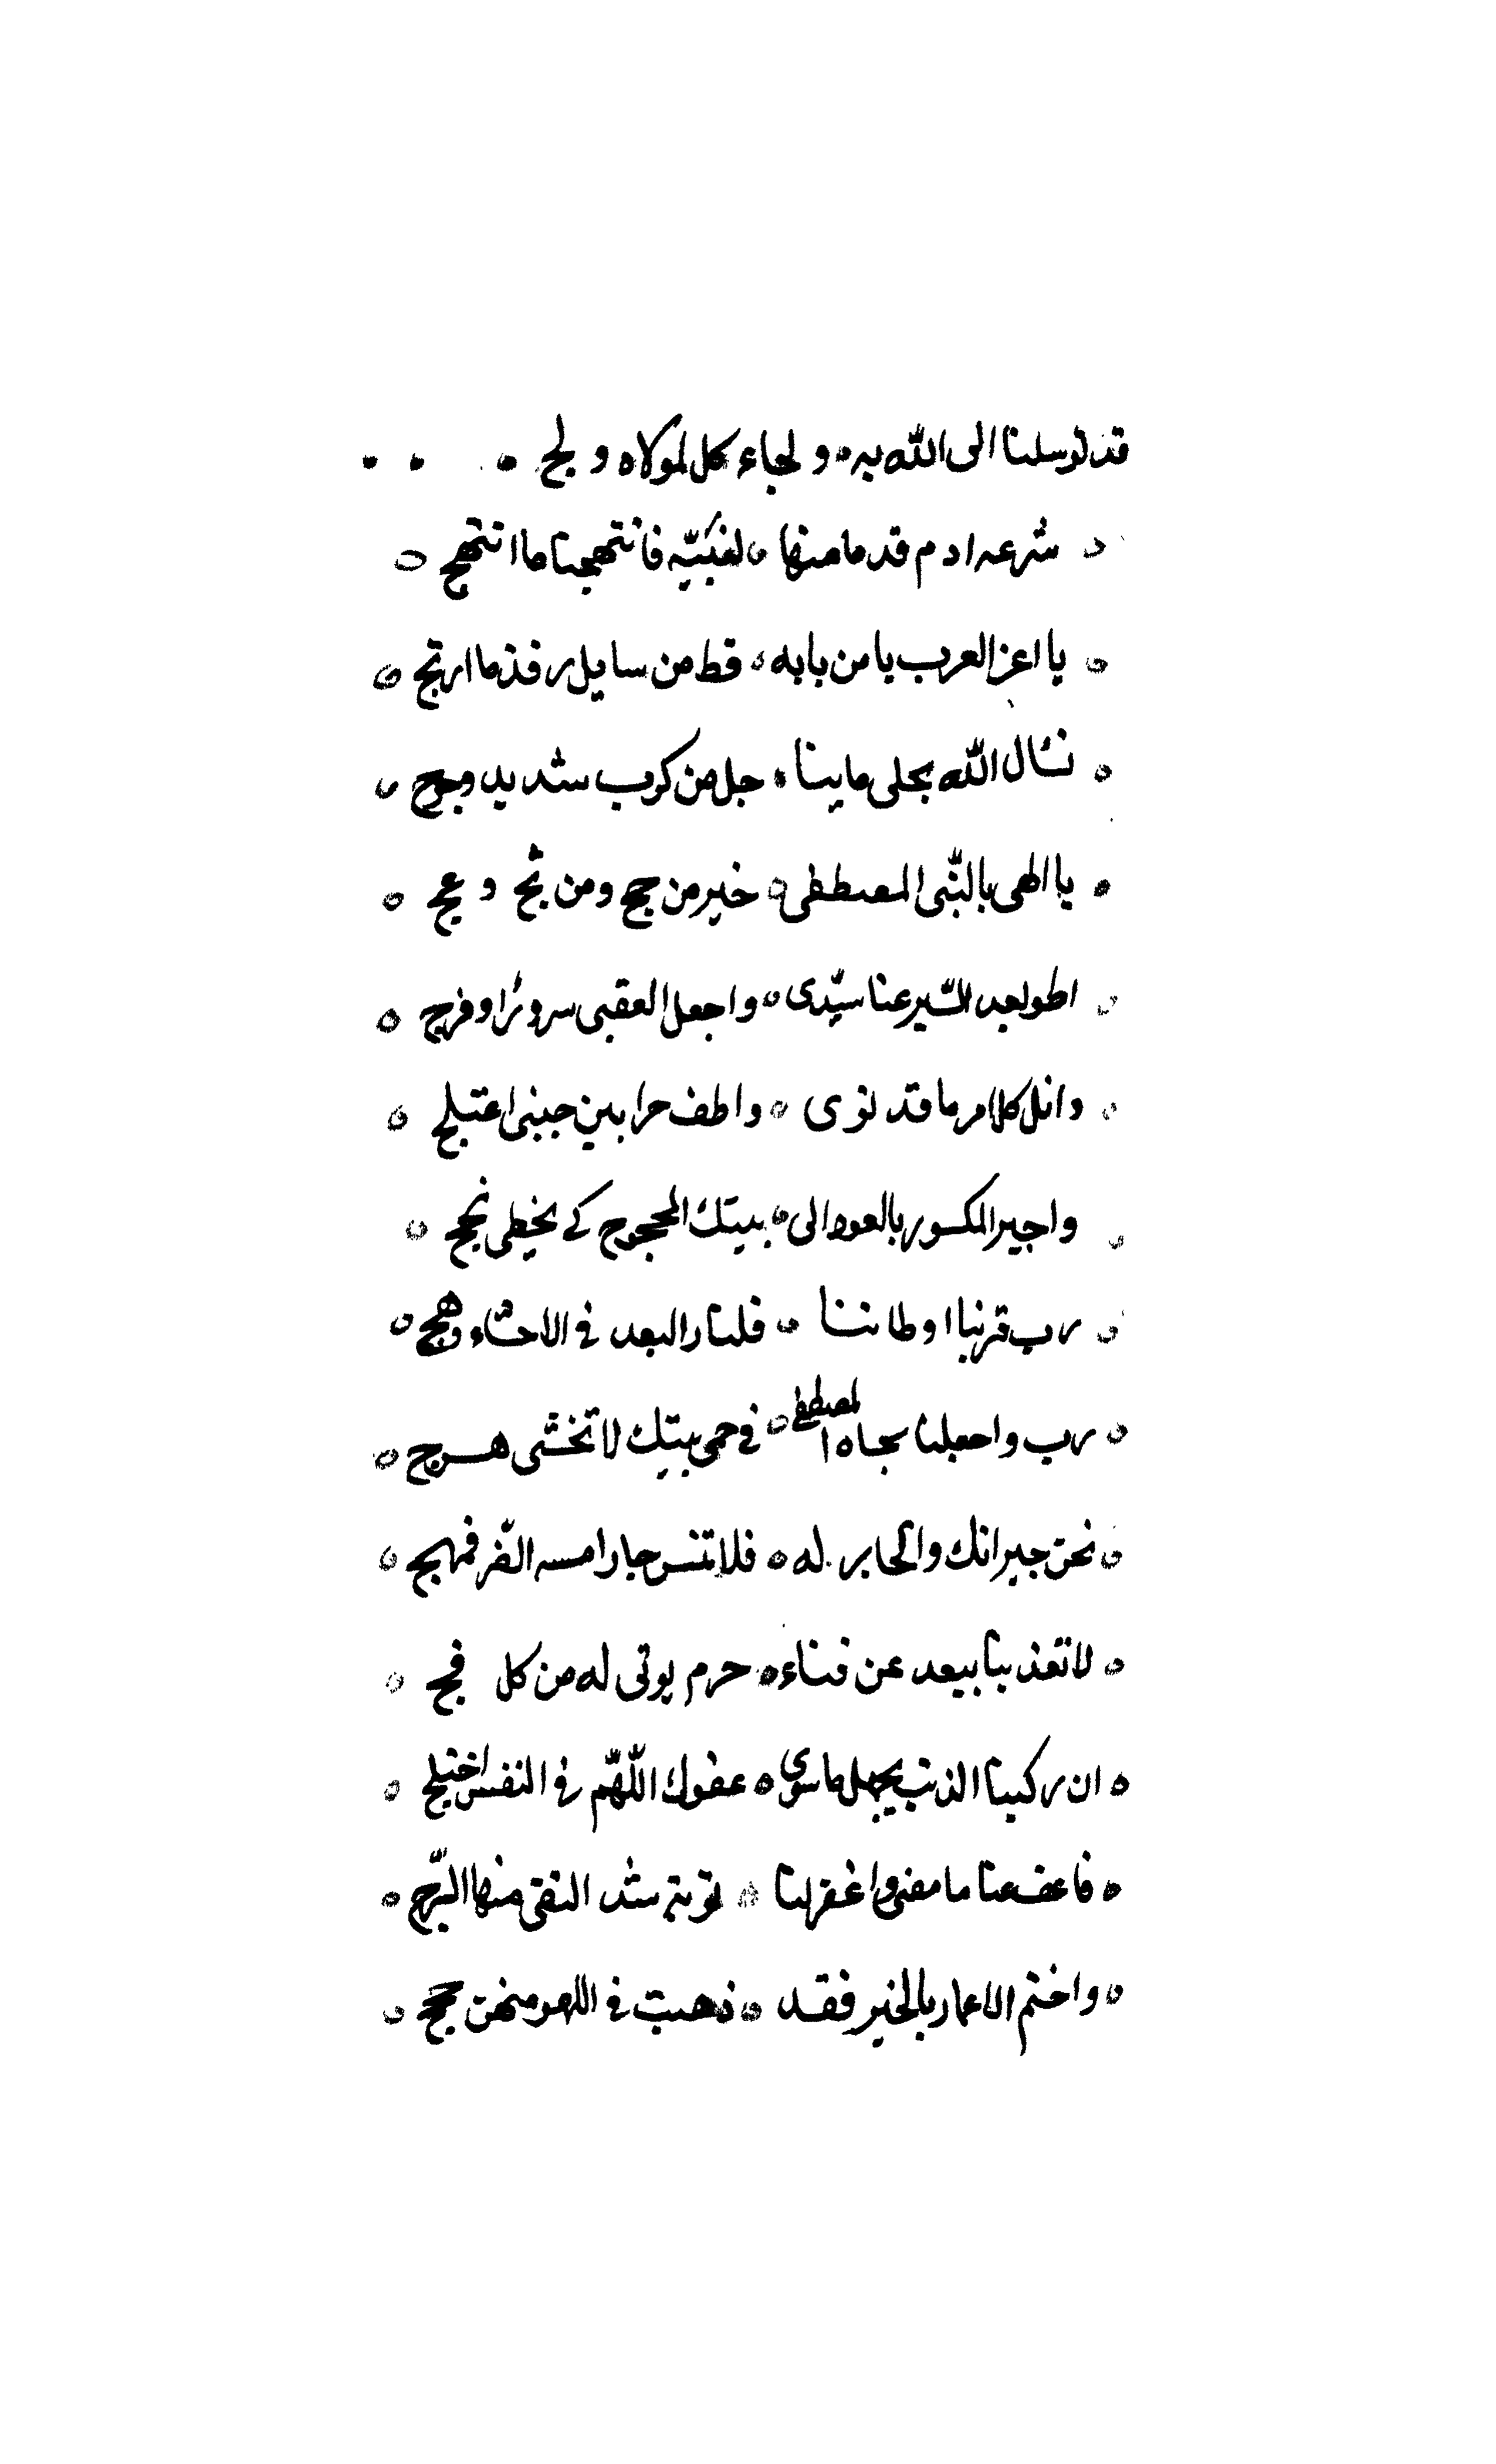 قد توسلنا الى الله به ولجاء كل لمولاه ولج
شرعه ادم قد ما منها لغبيّه فانتهجنا ما انتهج
يا اعز العرب يا من بابه قط من سايل رفد ما ارتج
نسٔال الله يجلى ما بنا جل من كرب شديد
يا الهى بالنّبى المصطفى خير من حج ومن ثج وعج
اطو لبعد السّير عنا سيّدى واجعل العقبى سرورًا وفرج
وانل كلا مر ما قد نوى واطف حرا بين جنبى اعتلج
واجبر المكسور بالعود الى بيتك المحجوج كے يخطى نجج
رب قربنا اوطاننا فلنار البعد فى الاحشاء وهج
رب واجعلنا بجاه المصطفى فى حمى بيتك لا تخشى هرج
نحن جيرانك والجابر له فلا تنس جارا مسه الضّر فمهج
لا تعذبنا ببعد عن فناء حرم يوتى له من كل فج
ان ركبنا الذنب بجهل ما سوى عفوك اللّهّم فى النفس اختلج
فاعف عنا ما مضى واغفر لنا توبة شد التقى منها
واختم الاعمار بالخير فقد ذهبت فى اللهو منهن حجج